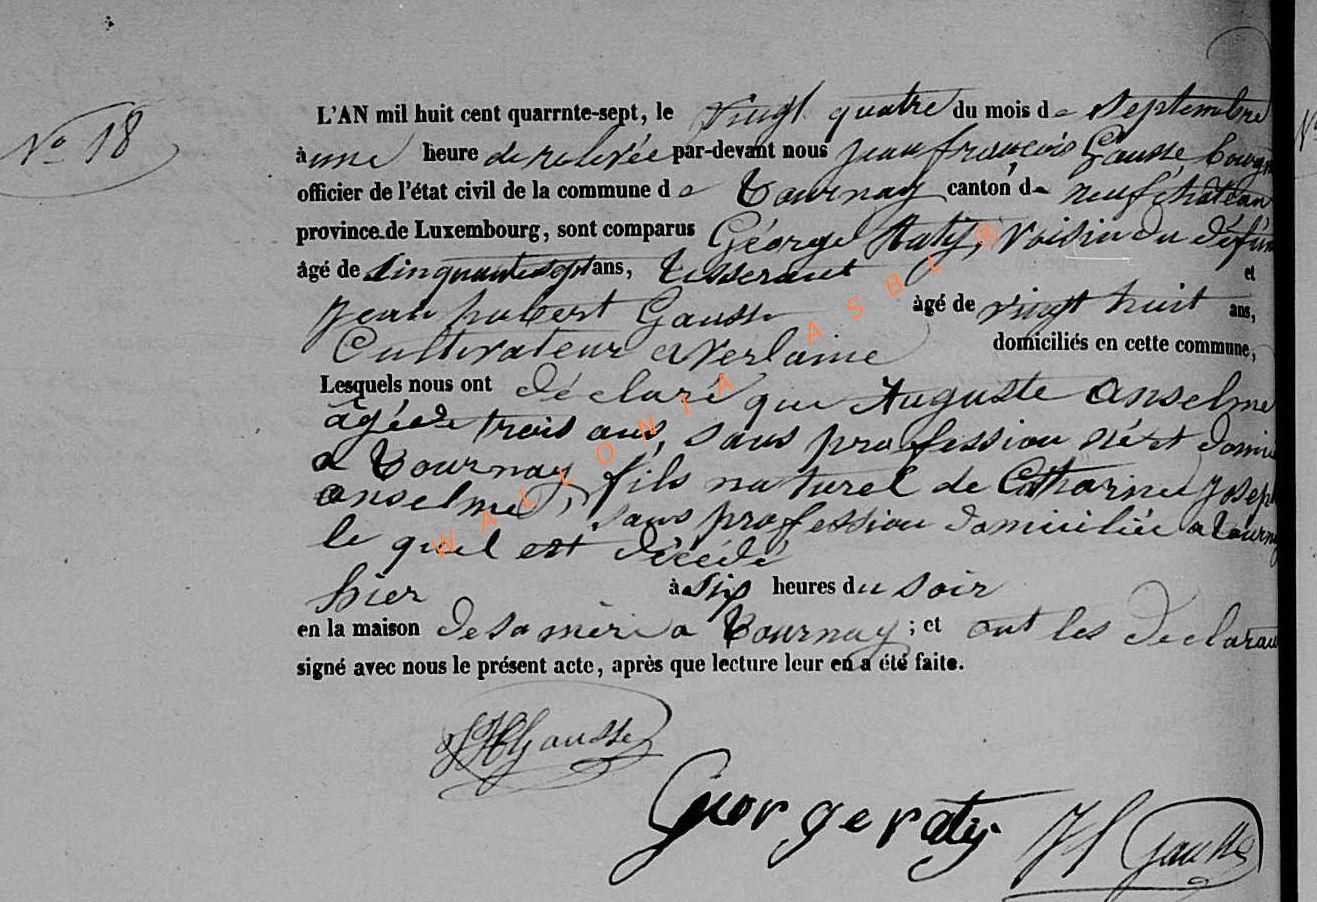 No 18
L'AN mil huit cent quarrnte-sept, le vingt quatre du mois de Septembre
à une heure de relevée par-devant nous jean françois Gausse bourgm
officier de l'état civil de la commune de Tournay canton de neufchâteau
province de Luxembourg, sont comparus Géorge Raty, voisin du défun
âgé de Cinquante sept ans, tisserant et
Jean hubert Gausse âgé de vingt huit ans,
Cultivateur a Verlaine domiciliés en cette commune,
Lesquels nous ont déclaré que Auguste Anselme
âgé de trois ans, sans profession né et domi
a Tournay, fils naturel de Catharine Joseph
anselme, sans profession domiciliée a tourna
le quel est décédé
hier à six heures du soir
en la maison de sa mère a Tournay; et ont les declaran
signé avec nous le présent acte, après que lecture leur en a été faite.
JH Gausse
George raty
Jf Gausse
WALLONIA ASBL ®